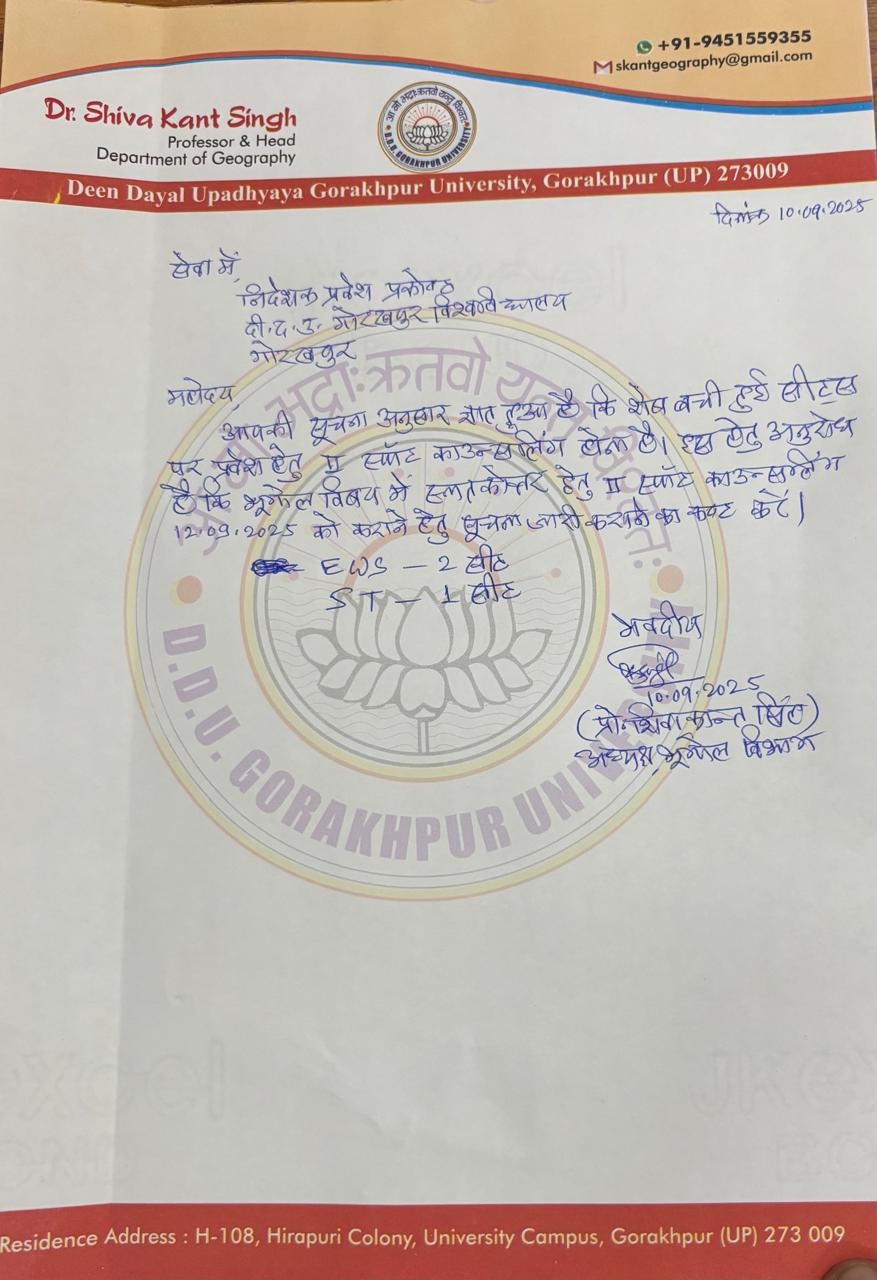 +91-9451559355
skantgeography@gmail.com
Dr. Shiva Kant Singh
Professor & Head
Department of Geography
आ नो भद्राः क्रतवो यन्तु विश्वतः
D.D.U. GORAKHPUR UNIVERSITY
Deen Dayal Upadhyaya Gorakhpur University, Gorakhpur (UP) 273009
दिनांक 10.09.2025
सेवा में,
निदेशक प्रवेश प्रकोष्ठ
दी.द.उ. गोरखपुर विश्वविद्यालय
गोरखपुर
महोदय,
आपकी सूचना अनुसार ज्ञात हुआ है कि शेष बची हुई सीट्स
पर प्रवेश हेतु II स्पॉट काउन्सलिंग होना है। इस हेतु अनुरोध
है कि भूगोल विषय में स्नातकोत्तर हेतु II स्पॉट काउन्सलिंग
12.09.2025 को कराने हेतु सूचना जारी कराने का कष्ट करें।
EWS – 2 सीट
ST – 1 सीट
भवदीय
10.09.2025
(प्रो. शिवा कान्त सिंह)
अध्यक्ष, भूगोल विभाग
D.D.U. GORAKHPUR UNIVERSITY
Residence Address : H-108, Hirapuri Colony, University Campus, Gorakhpur (UP) 273 009